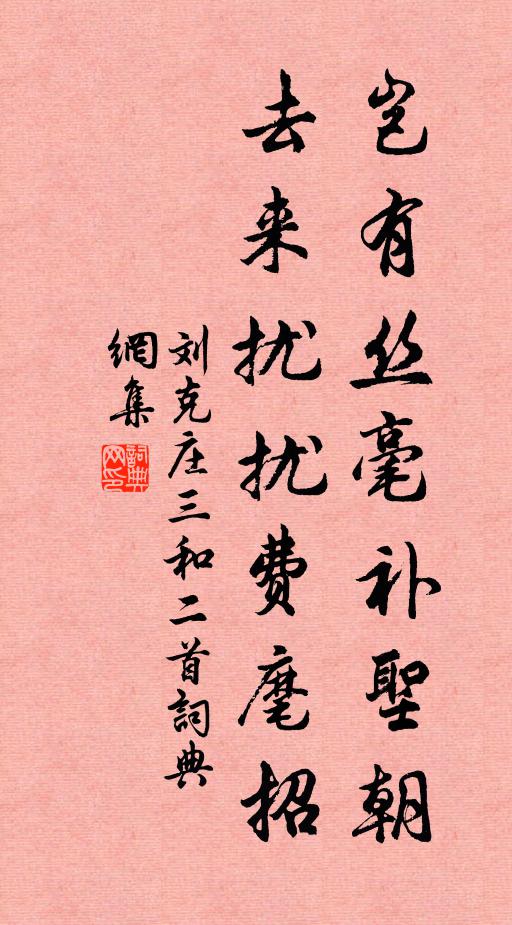 岂有丝毫补聖朝
去来扰扰费麾招
刘克庄三和二首詞典
網集
詞典
网印